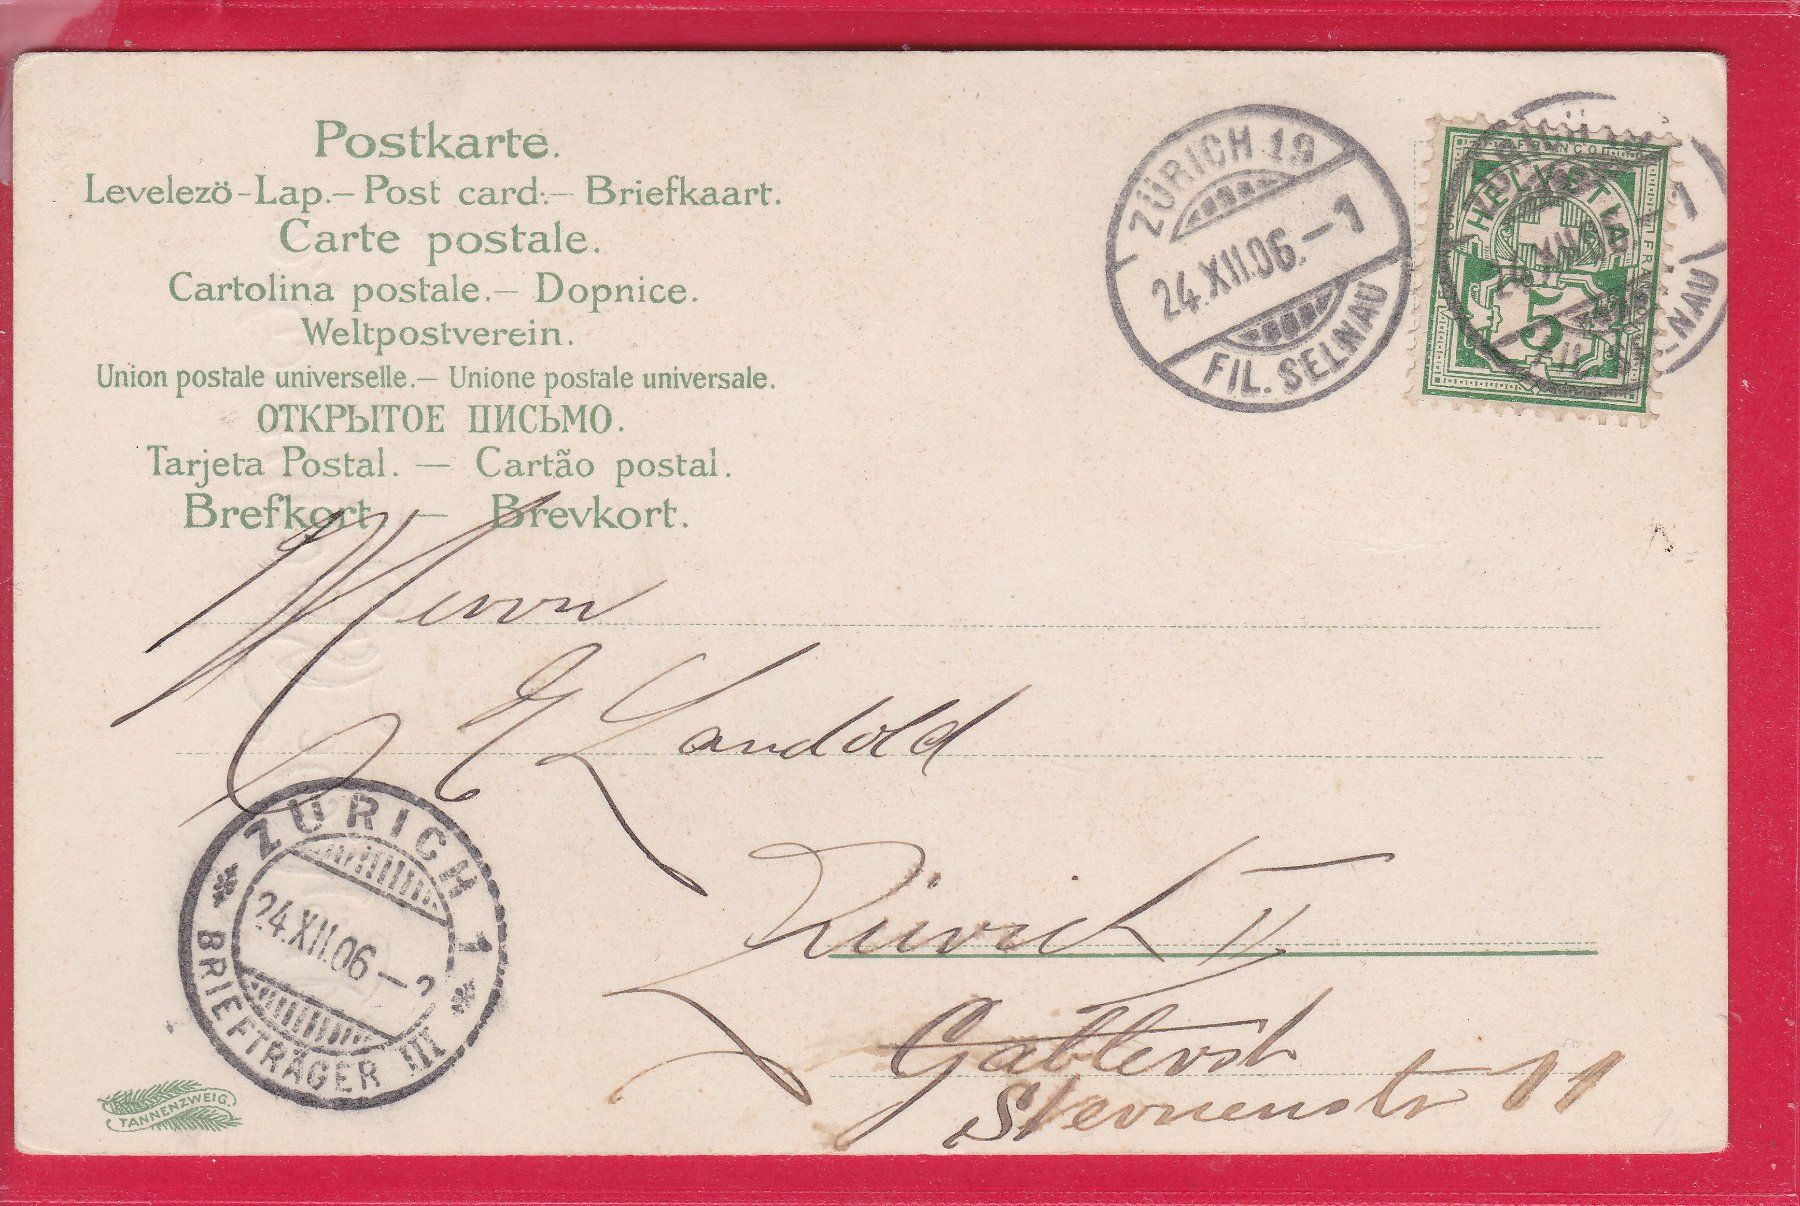 Postkarte.
Levelezö-Lap.— Post card.— Briefkaart.
Carte postale.
Cartolina postale.— Dopnice.
Weltpostverein.
Union postale universelle.— Unione postale universale.
ОТКРЫТОЕ ПИСЬМО.
Tarjeta Postal. — Cartão postal.
Brefkort — Brevkort.
ZÜRICH 19
24.XII.06.–1
FIL. SELNAU
FRANCO
HELVETIA
5
Herrn
E Landold
Zürich II
Gablerstr
Sternenstr 11
ZÜRICH 1
24.XII.06–
BRIEFTRÄGER III
TANNENZWEIG.